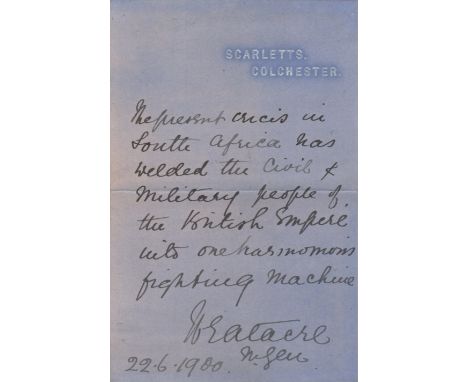 SCARLETTS.
COLCHESTER.
The present crisis in
South Africa has
welded the Civil &
Military people of
the British Empire
into one harmonious
fighting machine
WGatacre
M.Gen
22.6.1900.